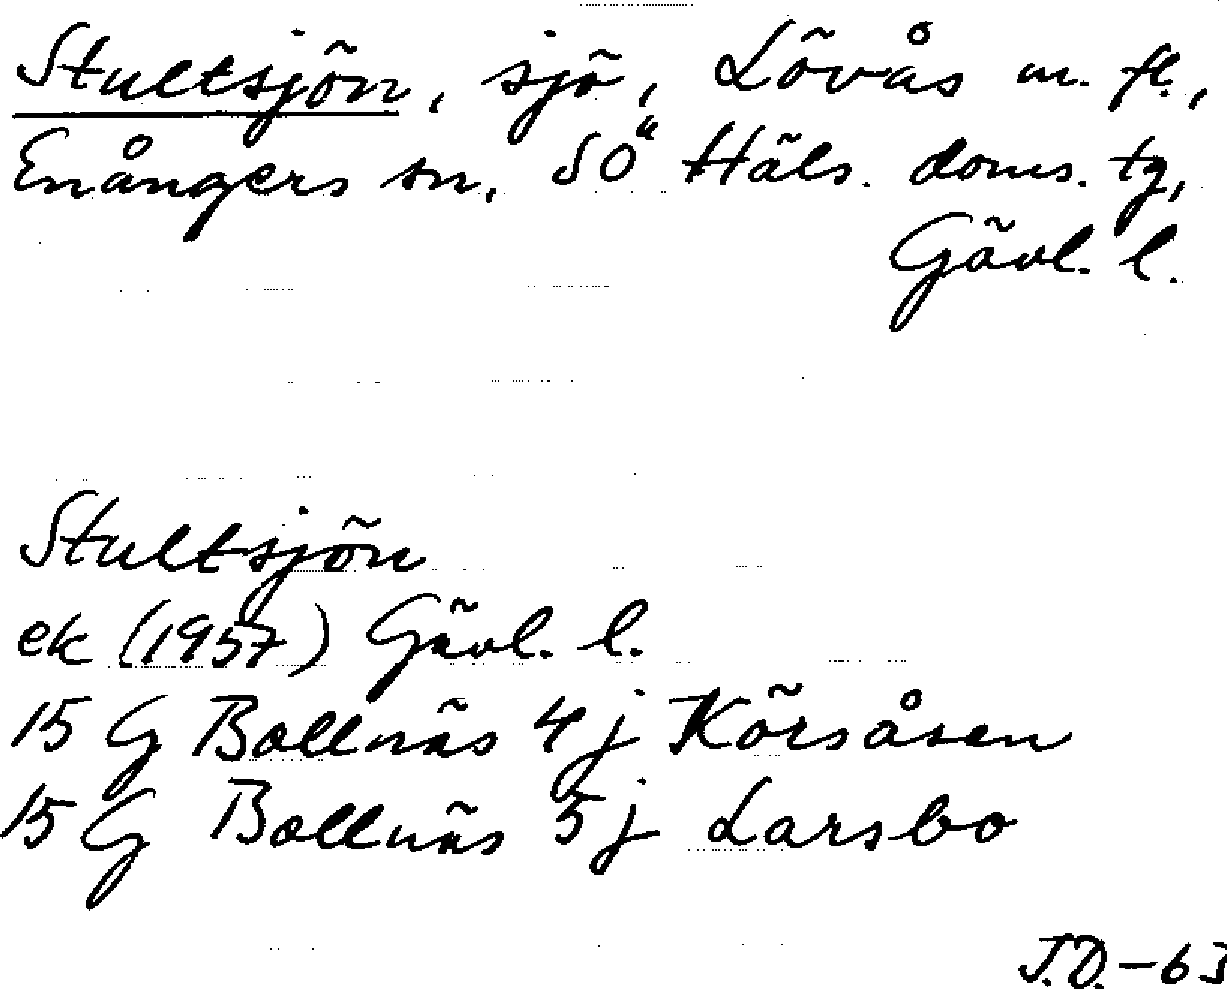 Stultsjön, sjö, Lövås m. fl.,
Enångers sn, SÖ Häls. doms. tg,
Gävl. l.
Stultsjön
ek (1957) Gävl. l.
15 G Bollnäs 4 j Körsåsen
15 G Bollnäs 5 j Larsbo
J.D. - 63